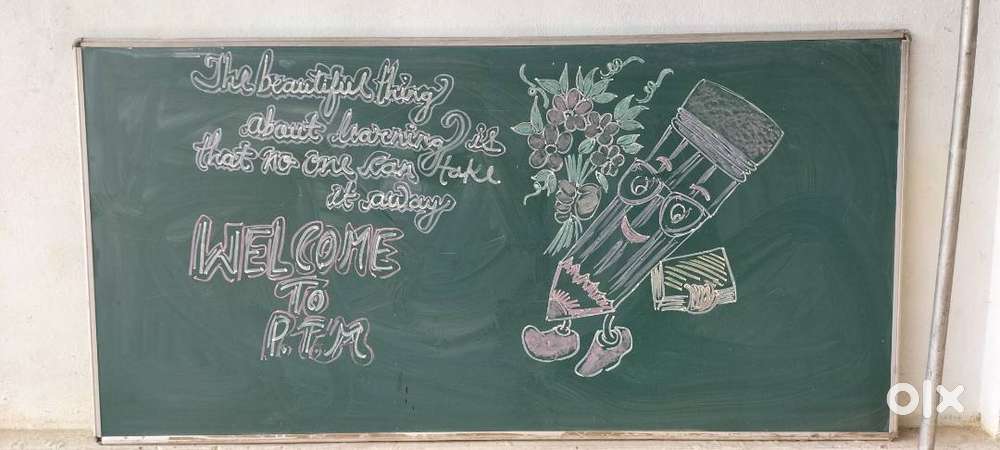 The beautiful thing
about learning is
that no one can take
it away
WELCOME
TO
P.T.M
olx